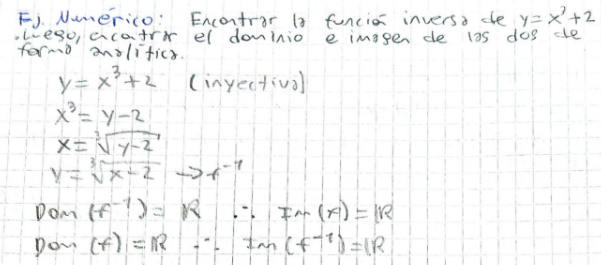 Ej. Numérico: Encontrar la función inversa de y=x³+2
.Luego, encontrar el dominio e imagen de las dos de
forma analítica.
y = x³+2 (inyectiva)
x³ = y-2
x = ∛(y-2)
y = ∛(x-2) → f⁻¹
Dom (f⁻¹) = ℝ ∴ Im (f) = ℝ
Dom (f) = ℝ ∴ Im (f⁻¹) = ℝ